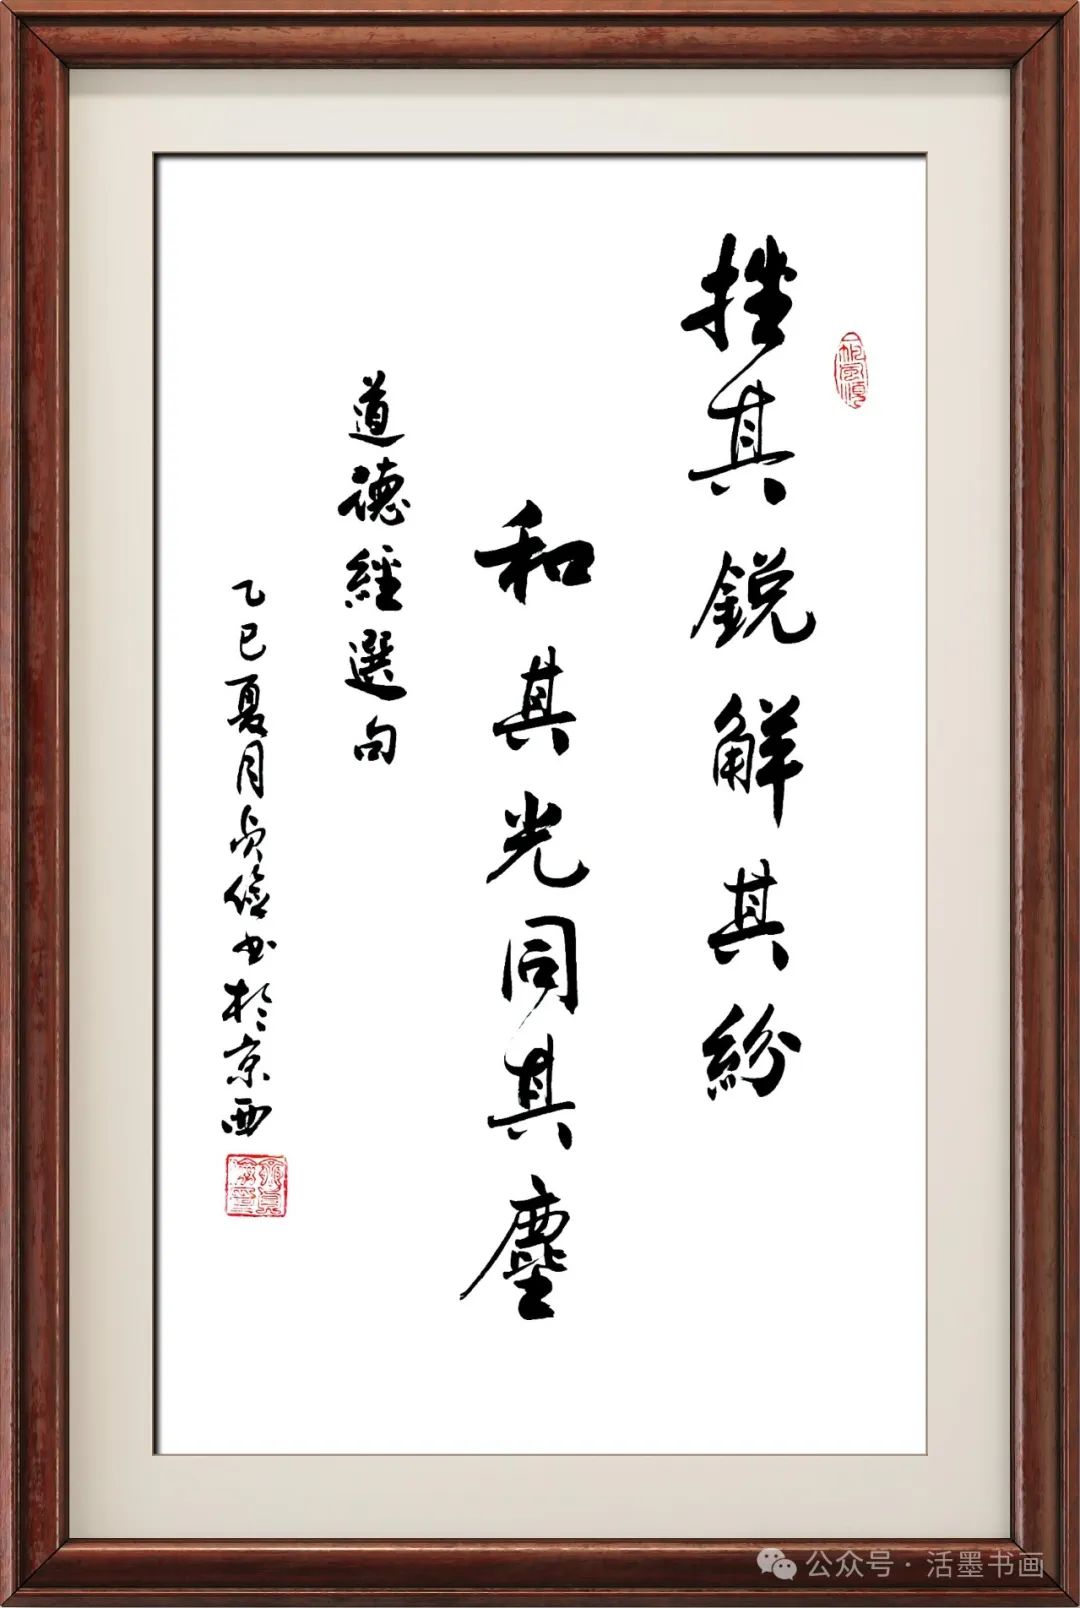 挫其銳解其紛
和其光同其塵
道德經選句
乙巳夏月貞儉书於京西
公众号·活墨书画